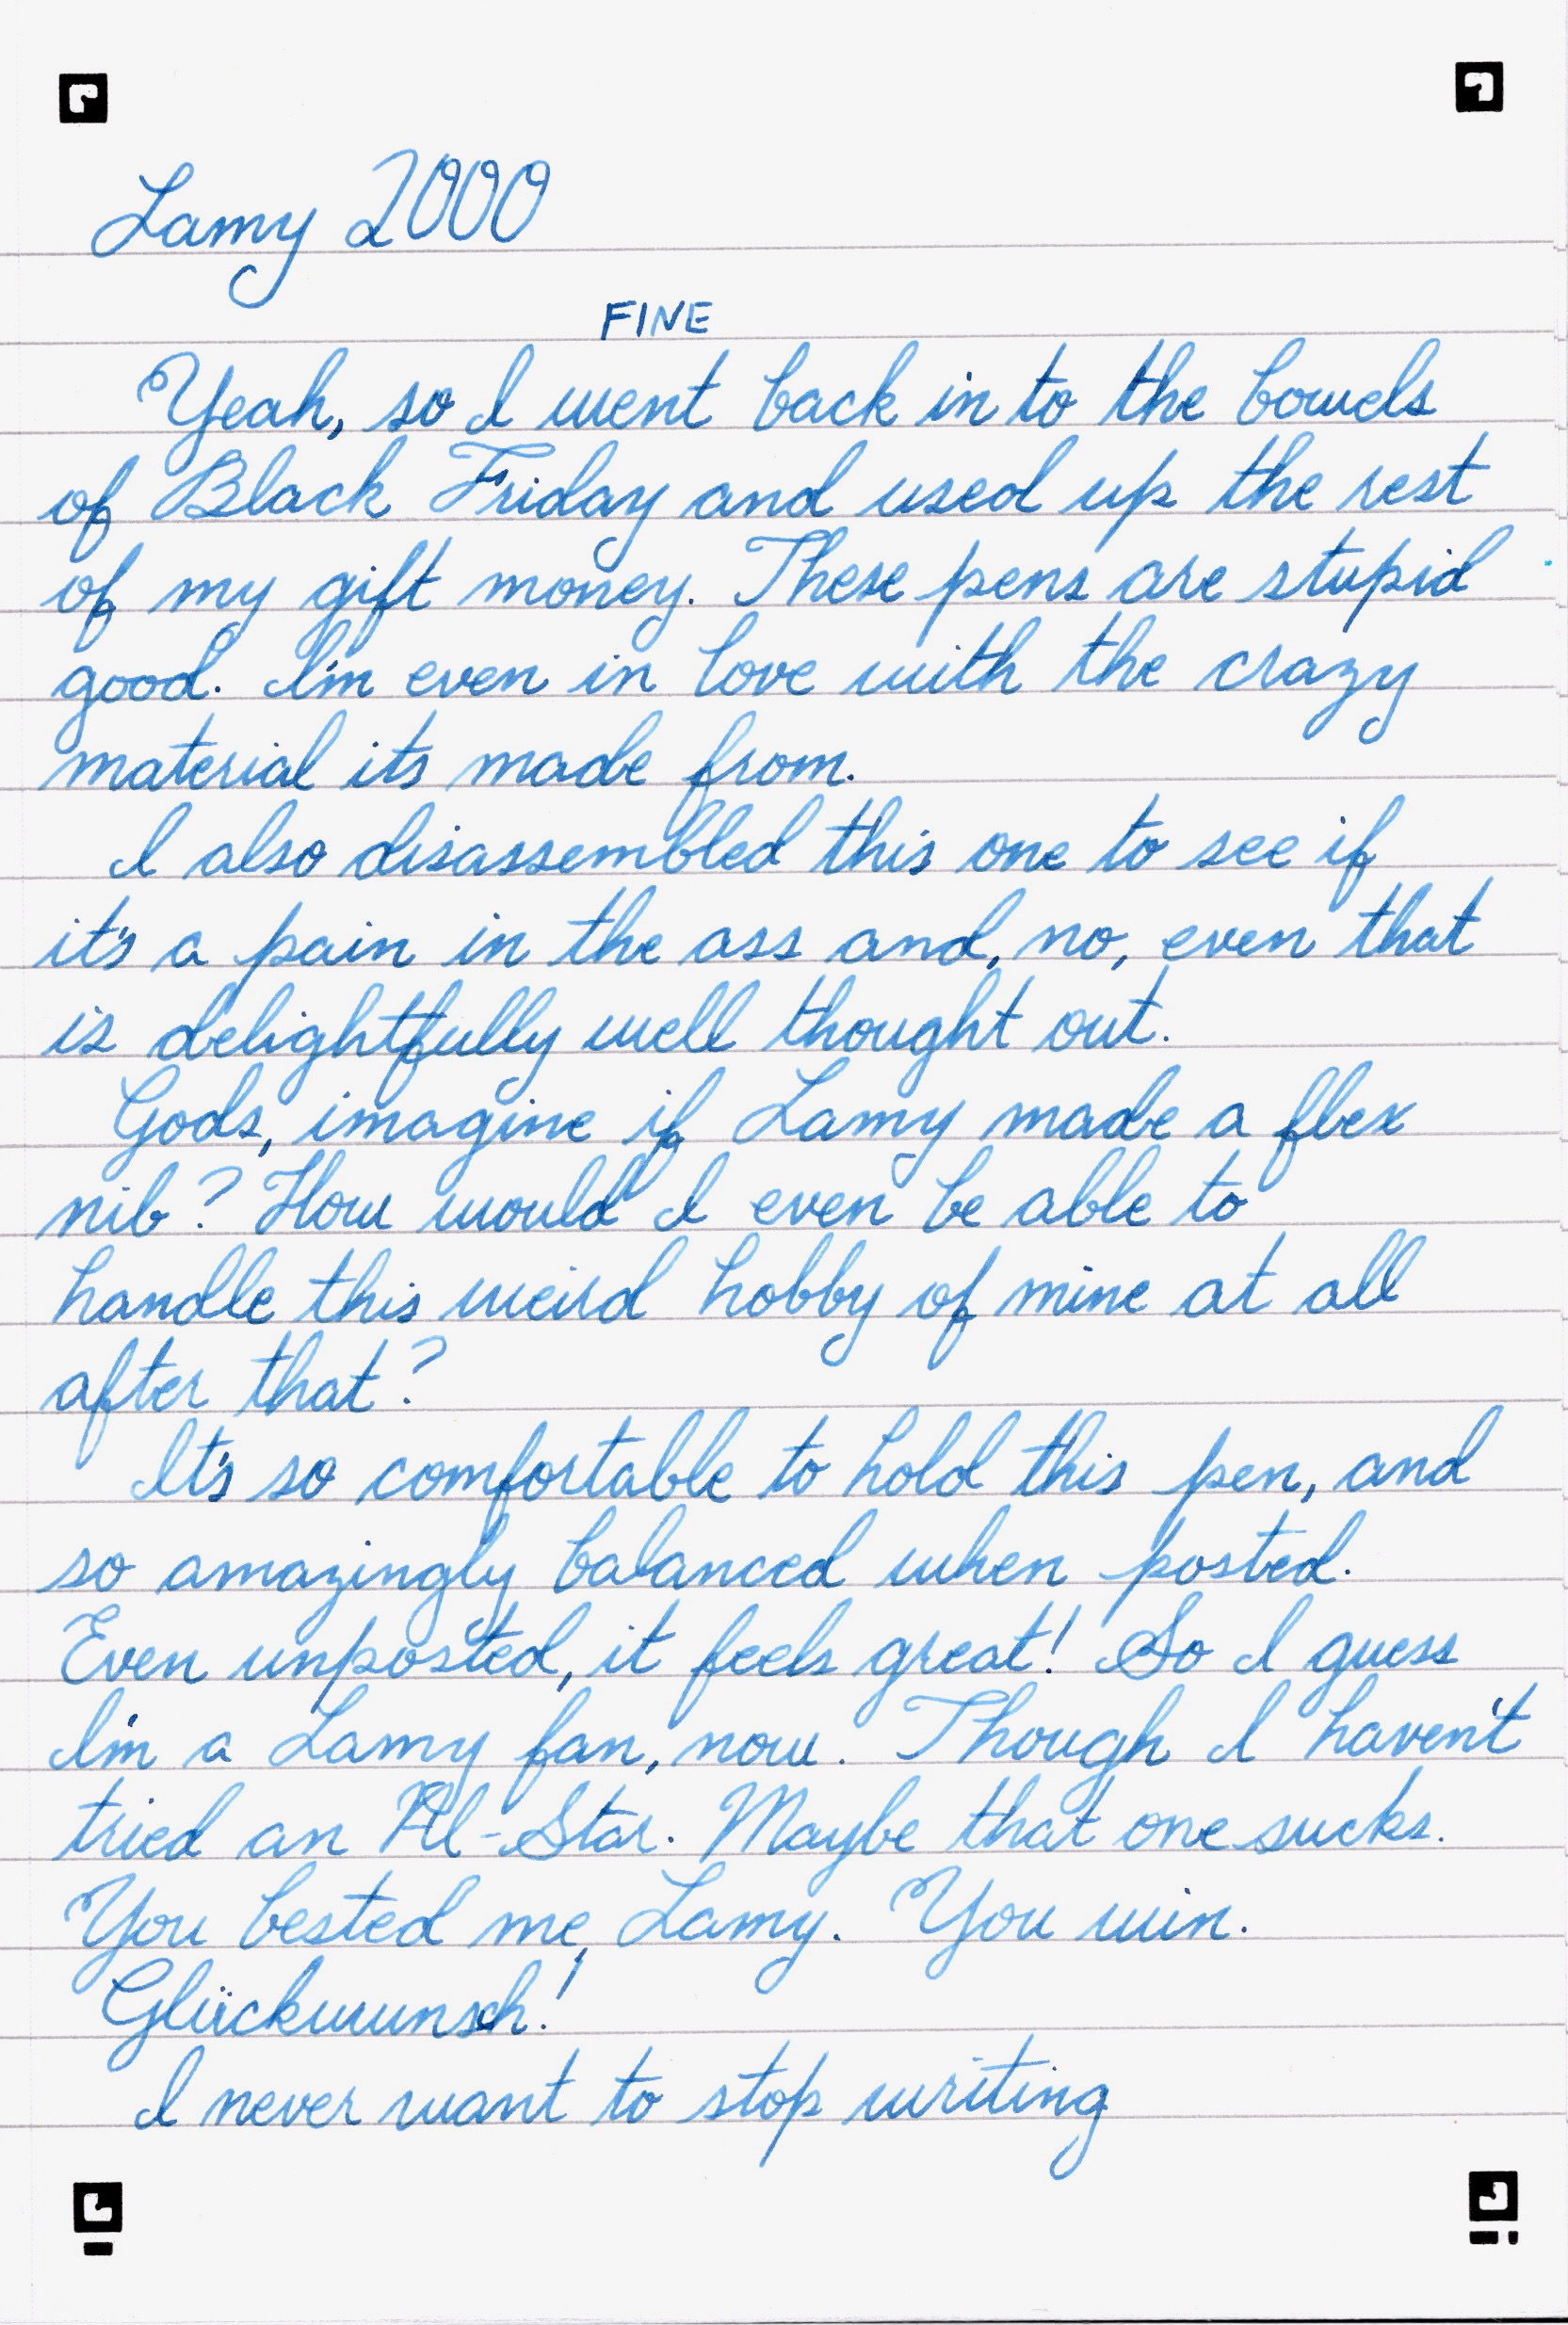 Lamy 2000
FINE
Yeah, so I went back in to the bowels
of Black Friday and used up the rest
of my gift money. These pens are stupid
good. I'm even in love with the crazy
material its made from.
I also disassembled this one to see if
it's a pain in the ass and, no, even that
is delightfully well thought out.
Gods, imagine if Lamy made a flex
nib? How would I even be able to
handle this weird hobby of mine at all
after that?
It's so comfortable to hold this pen, and
so amazingly balanced when posted.
Even unposted, it feels great! So I guess
I'm a Lamy fan, now. Though I haven't
tried an Al-Star. Maybe that one sucks.
You bested me, Lamy. You win.
Glückwunsch!
I never want to stop writing